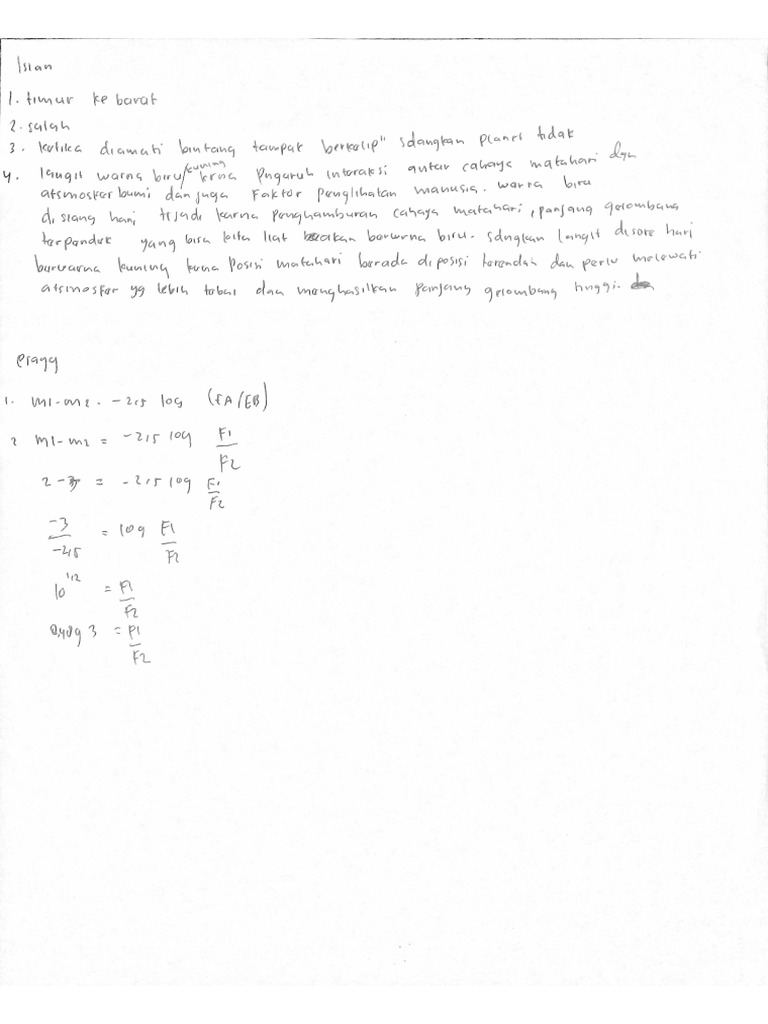 Isian
1. timur ke barat
2. salah
3. ketika diamati bintang tampak berkelip" sdangkan planet tidak
4. langit warna biru/kuning krna pngaruh interaksi antar cahaya matahari dgn
atsmosfer bumi dan juga faktor penglihatan manusia. warna biru
disiang hari trjadi karna penghamburan cahaya matahari, panjang gelombang
terpendek yang bisa kita liat akan berwrna biru. sdngkan langit disore hari
burwarna kuning krna posisi matahari berada diposisi terendah dan perlu melewati
atsmosfer yg lebih tebal dan menghasilkan panjang gelombang tinggi.
essay
1. m1-m2 = -2,5 log (EA/EB)
2 m1-m2 = -2,5 log F1/F2
2 - 5 = -2,5 log F1/F2
-3/-2,5 = log F1/F2
10^1,2 = F1/F2
= F1/F2